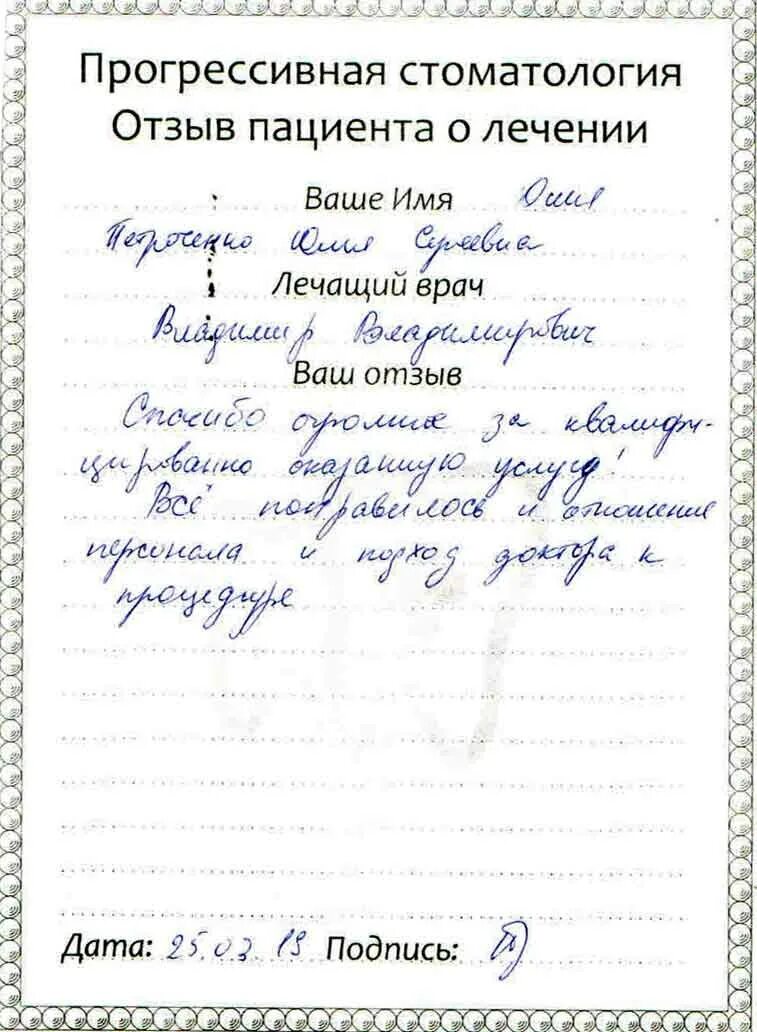 Прогрессивная стоматология
Отзыв пациента о лечении
Ваше Имя Юлия
Петроченко Юлия Сергеевна
Лечащий врач
Владимир Владимирович
Ваш отзыв
Спасибо огромное за квалифи-
цированно оказанную услугу!
Всё понравилось и отношение
персонала и подход доктора к
процедуре
Дата: 25.03.19 Подпись: